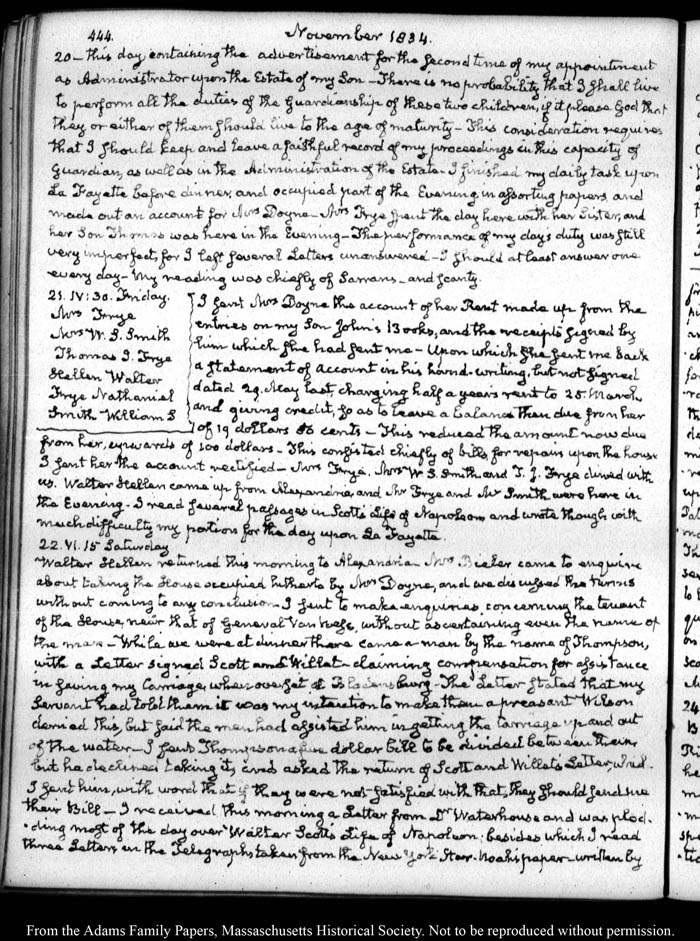 444.
November 1834.
20 – this day containing the advertisement for the second time of my appointment
as Administrator upon the Estate of my Son – There is no probability that I shall live
to perform all the duties of the Guardianship of these two children, if it please God that
they or either of them should live to the age of maturity – This consideration requires
that I should keep and leave a faithful record of my proceedings in this capacity of
Guardian, as well as in the Administration of the Estate – I finished my daily task upon
La Fayette before dinner, and occupied part of the Evening in assorting papers, and
made out an account for Mrs Doyne – Mrs Frye spent the day here with her Sister, and
her Son Thomas was here in the Evening – The performance of my day's duty was still
very imperfect, for I left several Letters unanswered – I should at least answer one
every day – My reading was chiefly of Sarrans – and scanty.
21. IV:30. Friday.
Mrs Frye
Mrs W. S. Smith
Thomas J. Frye
Hellen Walter
Frye Nathaniel
Smith William S
I sent Mrs Doyne the account of her Rent made up from the
entries on my Son John's Books, and the receipts signed by
him which she had sent me – Upon which she sent me back
a Statement of account in his hand-writing, but not signed
dated 29. May last, charging half a years rent to 25. March
and giving credit, so as to leave a balance then due from her
of 19 dollars 86 cents – This reduced the amount now due
from her, upwards of 100 dollars – This consisted chiefly of bills, for repairs upon the house
I sent her the account rectified – Mrs Frye, Mrs W. S. Smith and T. J. Frye dined with
us. Walter Hellen came up from Alexandria, and Mr Frye and Mr Smith were here in
the Evening – I read several passages in Scott's Life of Napoleon, and wrote though with
much difficulty my portion for the day upon La Fayette.
22. VI. 15 Saturday
Walter Hellen returned this morning to Alexandria – Mrs came to enquire
about taking the House occupied hitherto by Mrs Doyne, and we discussed the terms
without coming to any conclusion – I sent to make enquiries, concerning the tenant
of the House, near that of General Van Ness, without ascertaining even the name of
the man – While we were at dinner there came a man by the name of Thompson,
with a Letter signed Scott and Willet – claiming compensation for assistance
in saving my Carriage, when overset at Bladensburg – The Letter stated that my
Servant had told them it was my intention to make them a present Wilson
denied this, but said the men had assisted him in getting the carriage up and out
of the water – I sent Thompson a five dollar bill to be divided between them,
but he declined taking it, and asked the return of Scott and Willet's Letter, which
I sent him, with word that if they were not satisfied with that, they should send me
their Bill – I received this morning a Letter from Dr Waterhouse and was plod-
-ding most of the day over Walter Scott's Life of Napoleon: besides which I read
three Letters, in the Telegraph, taken from the New York Star. Noah's paper – written by
From the Adams Family Papers, Massachusetts Historical Society. Not to be reproduced without permission.